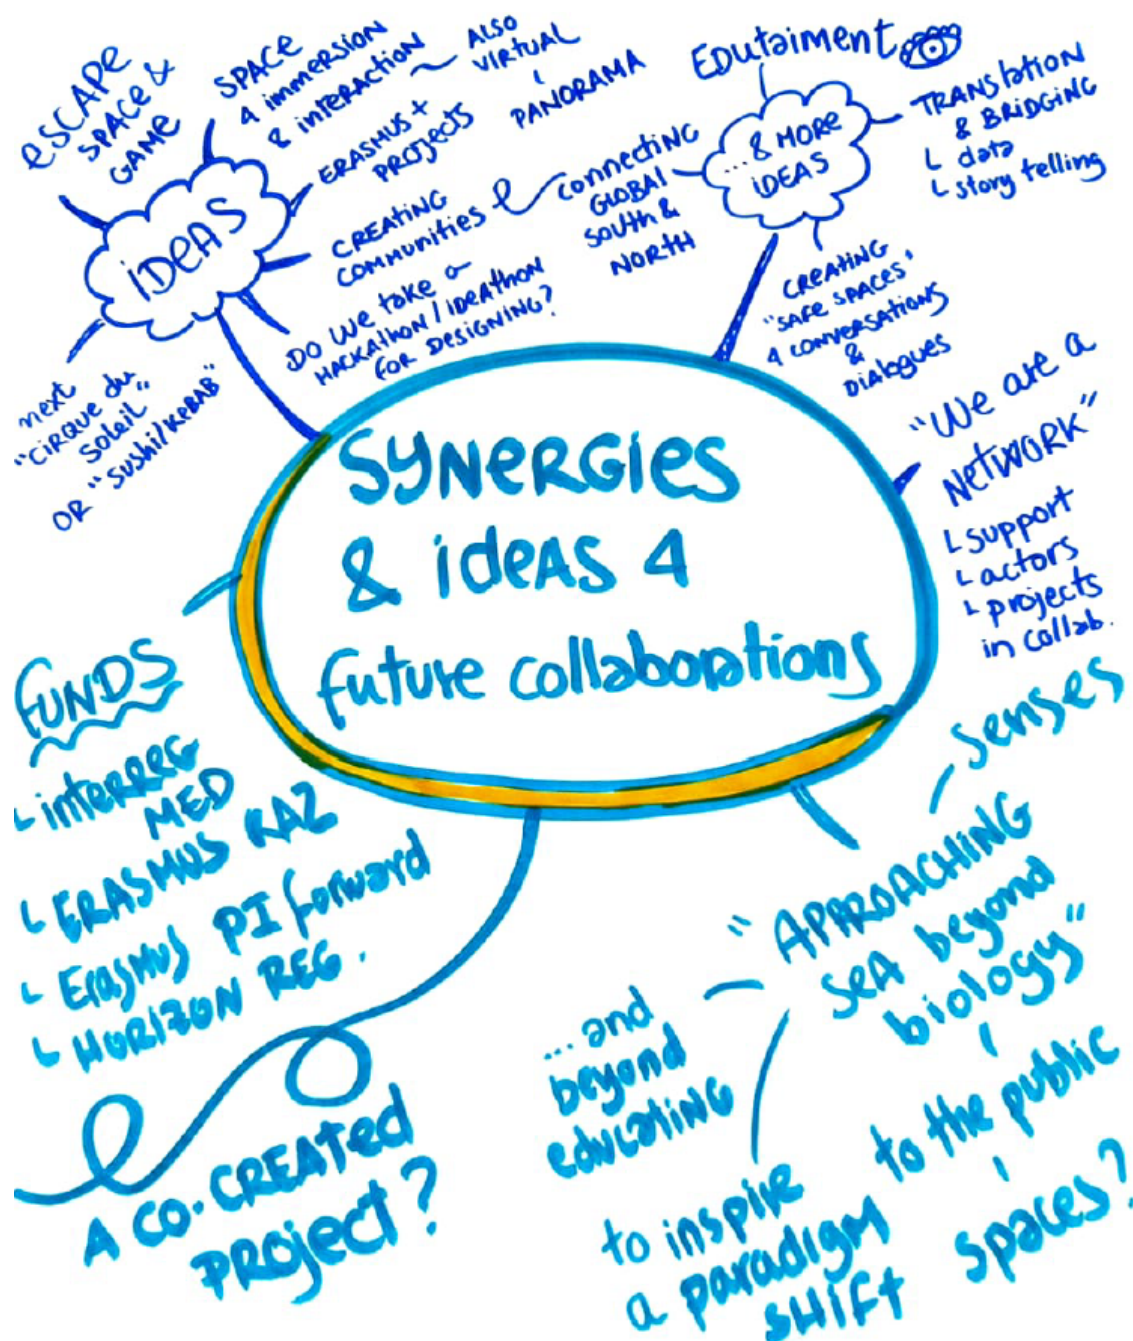 escape
space &
game
space
4 immersion
& interaction
also
virtual
panorama
erasmus +
projects
creating
communities
connecting
global
south &
north
do we take a
hackathon/ideathon
for designing?
ideas
next
"cirque du
soleil"
or "sushi/kebab"
Edutaiment
... & more
ideas
Translation
& bridging
data
story telling
creating
"safe spaces"
4 conversations
&
dialogues
"We are a
network"
support
actors
projects
in collab.
Synergies
& ideas 4
future collaborations
Funds
interreg
med
Erasmus KA2
Erasmus PI forward
Horizon REG.
A co-created
project?
senses
"Approaching
sea beyond
biology"
... and
beyond
educating
to inspire
a paradigm
shift
to the public
spaces?